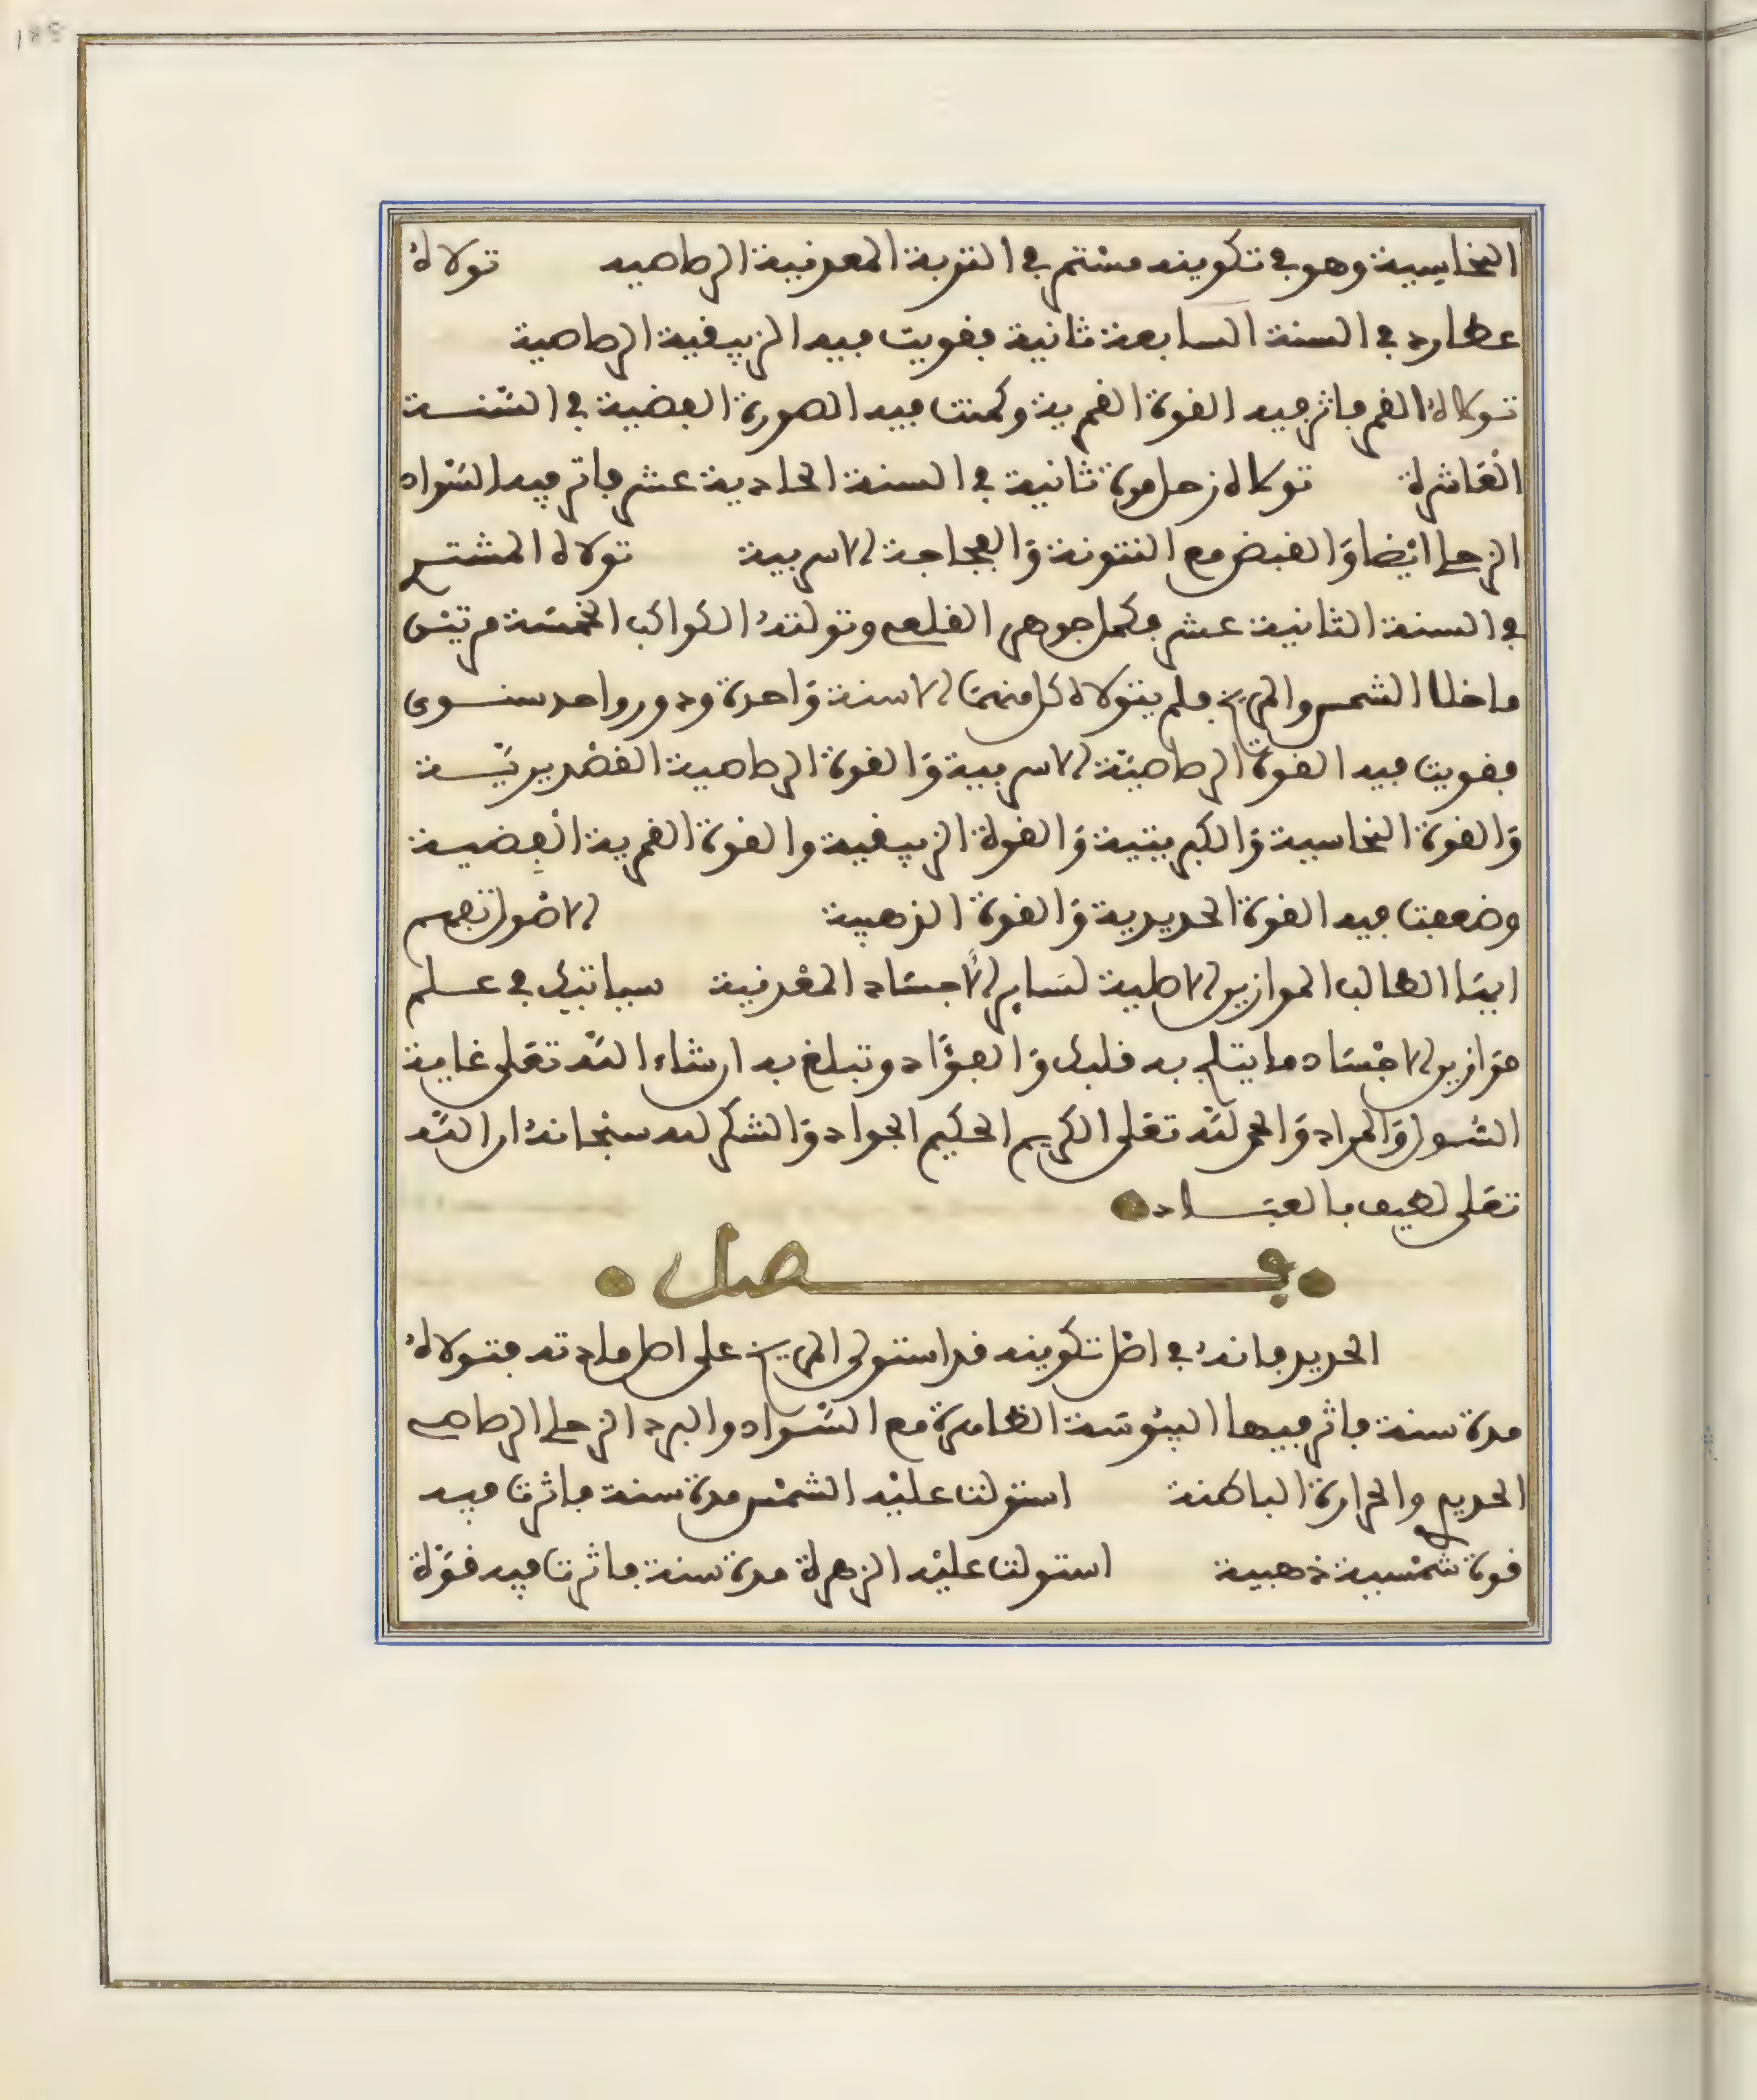 النحاسية وهو في تكوينه مستمر في التربة المعدنية الرصاصيه تولاهُ
عطارد في السنة السابعة ثانية فقويت فيه الزيبقية الرصاصية
تولاهُ القمر فاثر فيه القوة القمرية وكمنت فيه الصورة الفضية في السّنــة
العَاشرة تولاه زحل مرة ثانية في السنة الحادية عشر فاثر فيه السّواد
الزحلي ايْضا وَالقبض مع النتونة وَالفجاجة الاسربية تولاه المشتـري
في السنة الثانية عشر فكمل جوهر القلعي وتولتهُ الكواكب الخمسَة مرتيْن
ما خلا الشمس والمريخ فلم يتولاه كل منهمَا الا سنة وَاحدة ودور واحد سنــوى
فقويت فيه القوة الرصاصيَّة الاسربية وَالقوة الرصاصية القصْديريَّــة
وَالقوة النحاسية وَالكبريتية وَالقوة الزيبقية والقوة القمرية الفِضيـة
وضعفت فيه القوة الحديدية وَالقوة الذهبية الاصْول تفهم
ايهَا الطالب الموازين الاصلية لسَاير الاجسَاد المعْدنية سياتيك في عـلم
موَازين الاجْسَاد ما يثلج به قلبك وَالفؤَاد وتبلغ به ان شاء اللّه تعَلى غاية
السّـول وَالمراد وَالحمد للّه تعَلى الكريم الحكيم الجواد وَالشكر له سبْحانهُ ان اللّه
تعَلى لطيف بالعبَــاد
فـــصل
الحديد فانهُ في اصْل تكوينه قد استولى المريخ على اصل مادته فتـولاهُ
مدة سنة فاثر فيها اليبُوسَة الظاهرة مع السّـواد والبرد الزحلي الرصاصي
الحديدي والحرارة الباطنة استولت عليْه الشمْس مدة سنة فاثرت فيه
قوة شمْسية ذهبية استولت عليْه الزهرة مدة سنة فاثرت فيه قوَّة